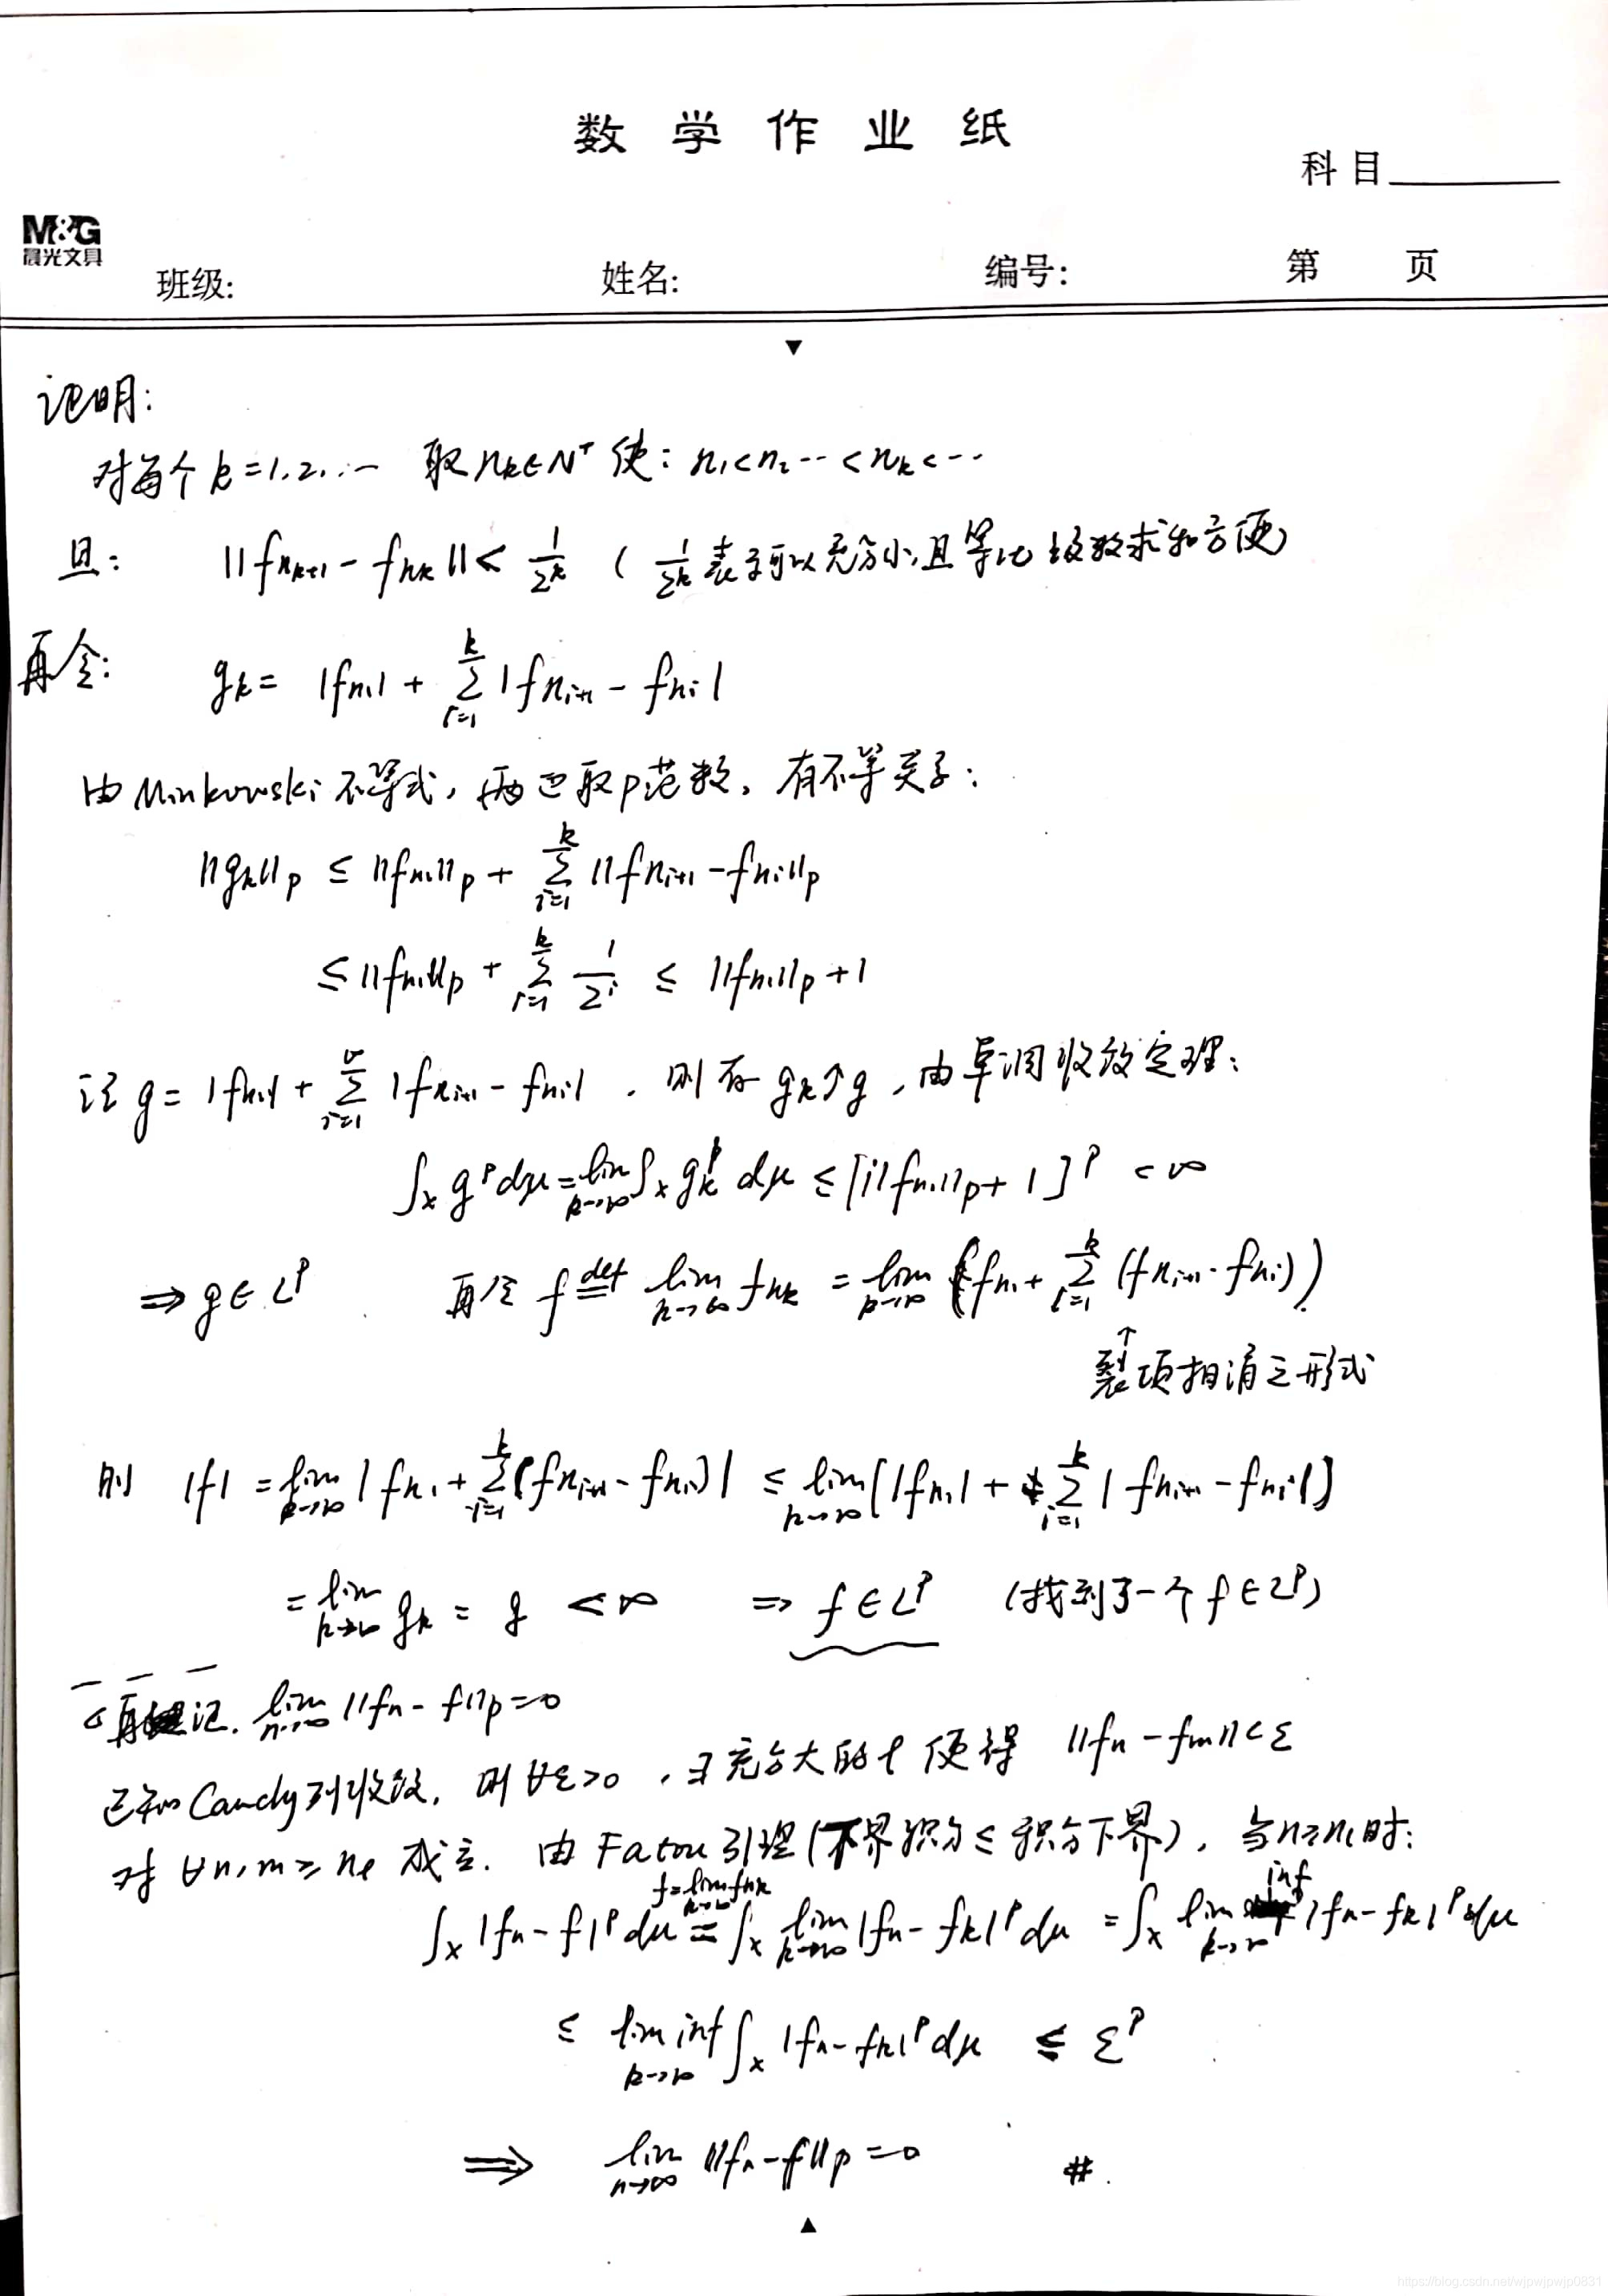 数学作业纸
科目
M&G
晨光文具
班级: 姓名: 编号: 第 页
▼
证明:
对每个 k=1,2,… 取 n_k∈N⁺ 使: n₁<n₂…<n_k<…
且: ||f_{n_{k+1}} - f_{n_k}|| < 1/2^k ( 1/2^k 表示可以充分小,且等比级数求和方便)
再令: g_k = |f_{n_1}| + Σ_{i=1}^{k} |f_{n_{i+1}} - f_{n_i}|
由 Minkowski 不等式, 两边取p范数, 有不等关系:
||g_k||_p ≤ ||f_{n_1}||_p + Σ_{i=1}^{k} ||f_{n_{i+1}} - f_{n_i}||_p
≤ ||f_{n_1}||_p + Σ_{i=1}^{k} 1/2^i ≤ ||f_{n_1}||_p + 1
记 g = |f_{n_1}| + Σ_{i=1}^{∞} |f_{n_{i+1}} - f_{n_i}| , 则有 g_k↑g , 由单调收敛定理:
∫_X g^p dμ = lim_{k→∞} ∫_X g_k^p dμ ≤ [||f_{n_1}||_p + 1]^p < ∞
⇒ g∈L^p 再令 f ≝ lim_{k→∞} f_{n_k} = lim_{k→∞} (f_{n_1} + Σ_{i=1}^{k} (f_{n_{i+1}} - f_{n_i})).
↑
裂项相消之形式
则 |f| = lim_{k→∞} |f_{n_1} + Σ_{i=1}^{k} (f_{n_{i+1}} - f_{n_i})| ≤ lim_{k→∞} [|f_{n_1}| + Σ_{i=1}^{k} |f_{n_{i+1}} - f_{n_i}|]
= lim_{k→∞} g_k = g < ∞ ⇒ f∈L^p (找到了一个 f∈L^p)
再证. lim_{n→∞} ||f_n - f||_p = 0
已知 Cauchy列收敛, 则 ∀ε>0 , ∃充分大的 l 使得 ||f_n - f_m|| < ε
对 ∀n,m ≥ n_l 成立. 由 Fatou 引理 (下界积分 ≤ 积分下界), 当 n≥n_l 时:
f=lim_{k→∞} f_{n_k}
∫_X |f_n - f|^p dμ = ∫_X lim_{k→∞} |f_n - f_k|^p dμ = ∫_X lim inf_{k→∞} |f_n - f_k|^p dμ
≤ lim inf_{k→∞} ∫_X |f_n - f_k|^p dμ ≤ ε^p
⇒ lim_{n→∞} ||f_n - f||_p = 0 #.
▲
https://blog.csdn.net/wjpwjpwjp0831